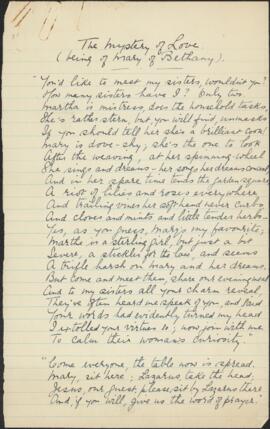 The Mystery of Love
(being of Mary of Bethany).
"You'd like to meet my sisters, wouldn't you?
How many sisters have I? Only two.
Martha is mistress, does the household tasks,
She's rather stern, but you will find, unmasks
If you should tell her she's a brilliant cook!
Mary is dove-shy; she's the one to look
After the weaving, at her spinning-wheel
She sings and dreams - her songs her dreams conceal,
And in her spare time tends the garden square
A riot of lilies and roses everywhere,
And trailing vines her soft hand never curbs
And cloves and mints and little tender herbs.
Yes, as you guess, Mary's my favourite;
Martha is a sterling girl, but just a bit
Severe, a stickler for the law, and seems
A trifle harsh on Mary and her dreams.
But come and meet them, share our evening meal
And to my sisters all your charm reveal,
They've often heard me speak of you, and said
Your words had evidently turned my head
I extolled your virtues so; now join with me
To calm their woman's curiosity."
"Come everyone, the table now is spread.
Mary, sit here; Lazarus, take the head,
Jesus, our guest, please, sit by Lazarus there
And, if you will, give us the word of prayer."